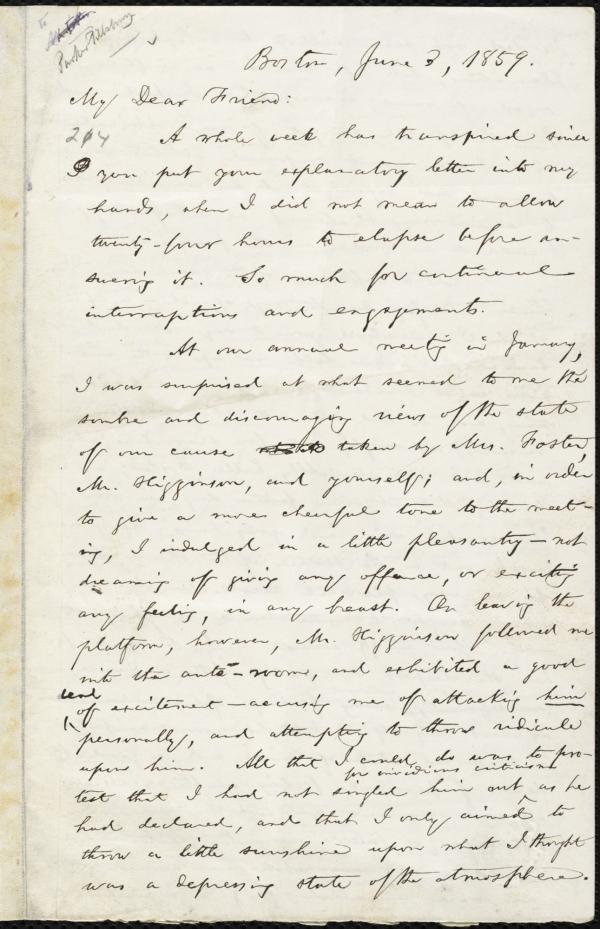 to
Parker Pillsbury
Boston, June 3, 1859.
My Dear Friend:
204 A whole week has transpired since
you put your explanatory letter into my
hands, when I did not mean to allow
twenty-four hours to elapse before an-
swering it. So much for continual
interruptions and engagements.
At our annual meeting in January,
I was surprised at what seemed to me the
sombre and discouraging views of the state
of our cause taken by Mrs. Foster,
Mr. Higginson, and yourself; and, in order
to give a more cheerful tone to the meet-
ing, I indulged in a little pleasantry — not
dreaming of giving any offence, or exciting
any feeling, in any breast. On leaving the
platform, however, Mr. Higginson followed me
into the ante-room, and exhibited a good
deal
of excitement — accusing me of attacking him
personally, and attempting to throw ridicule
upon him. All that I could do was to pro-
for invidious criticism
test that I had not singled him out, as he
had declared, and that I only aimed to
throw a little sunshine upon what I thought
was a depressing state of the atmosphere.